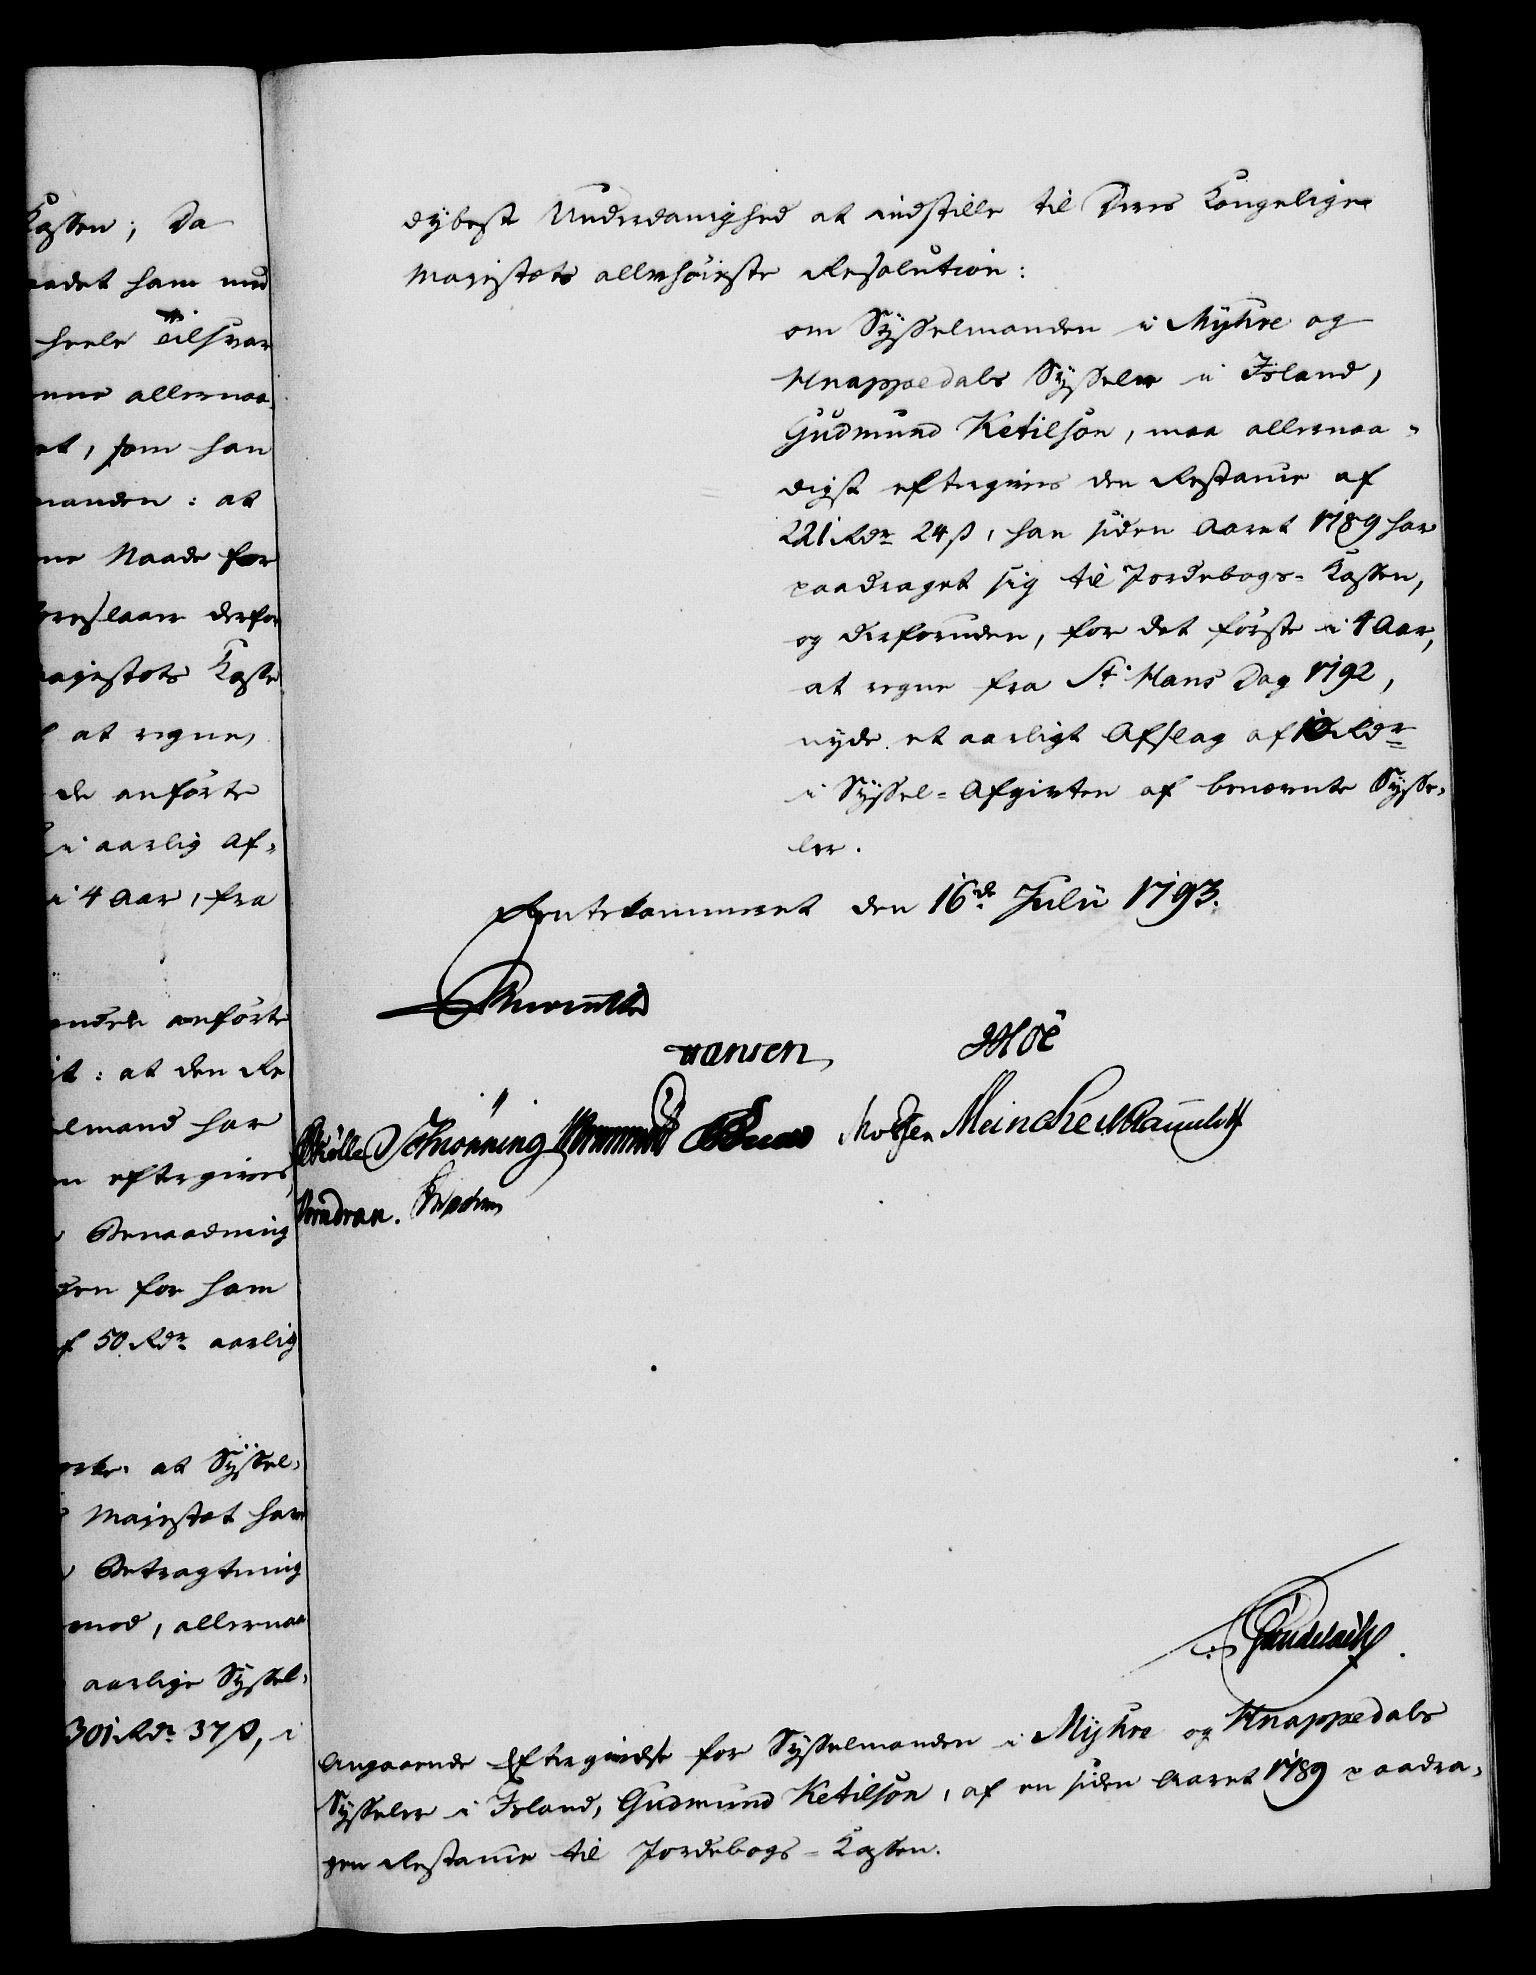 Kassen; Da
aadet ham med
heele Tilsvar
nne allernaa-
et, som han
manden: at
ne Naade for
oreslaaer derfor
ajestæts Kasse
at regne,
de anförte
i aarlig Af-
i 4 Aar, fra
anförte
it: at den Re
elmand har
eftergives,
Benaadning
for ham
f 50 Rdr aarlig
at Syssel-
Majestæt har
Betragtning
mod, allernaa
aarlige Syssel-
301 Rdr 37 ß, i
dybest Underdanighed at indstille til Deres Kongelige
Majestæts allerhöieste Resolution:
om Sysselmanden i Myhre og
Hnappedals Sysseler i Island,
Gudmund Ketilsön, maa allernaa-
digst eftergives den Restance af
221 Rdr 24 ß, han siden Aaret 1789 har
paadraget sig til Jordebogs-Kassen,
og derforuden, for det förste i 4 Aar,
at regne fra St. Hans Dag 1792,
nyde et aarligt Afslag af 10 Rdr
i Syssel-Afgivten af benævnte Sysse-
ler.
Rentekammeret den 16de Julii 1793.
Hansen
Schiönning
Meincke
Vendran.
Angaaende Eftergivelse for Sysselmanden i Myhre og Hnappedals
Sysseler i Island, Gudmund Ketilsön, af en siden Aaret 1789 paadra-
gen Restance til Jordebogs-Kassen.